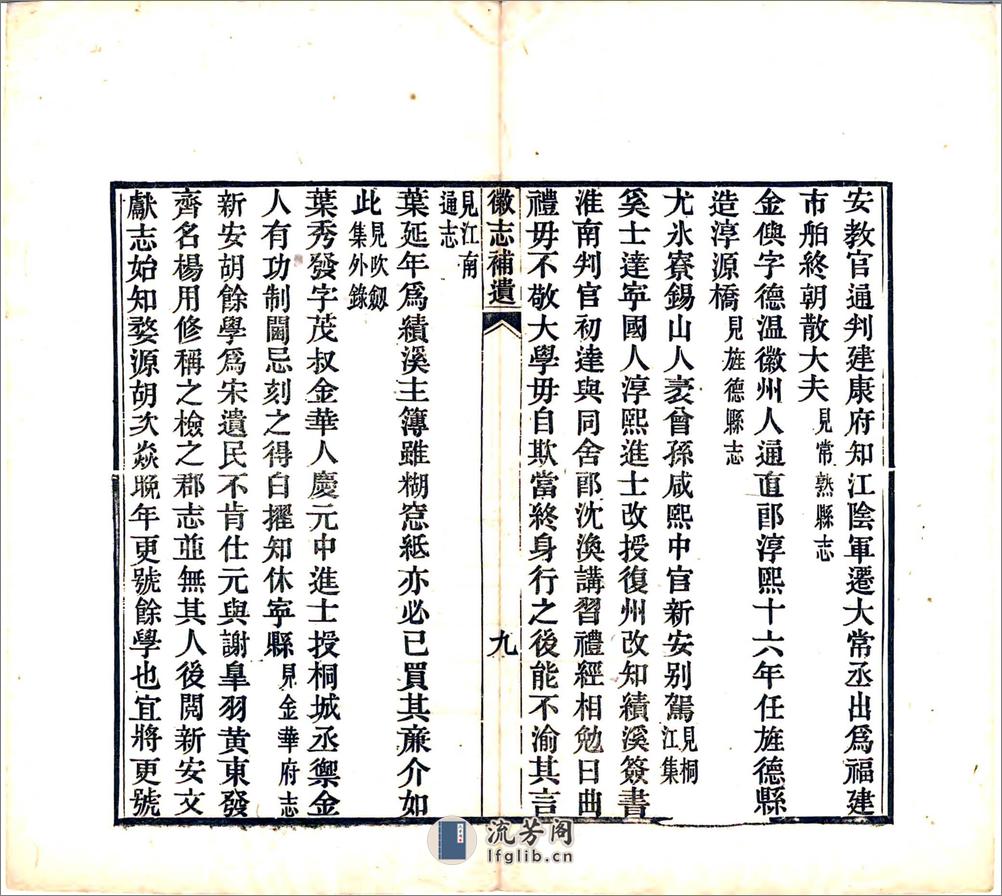 安教官通判建康府知江陰軍遷大常丞出爲福建
市舶終朝散大夫見常熟縣志
金傸字德溫徽州人通直郎淳熙十六年任旌德縣
造淳源橋見旌德縣志
尤氷寮錫山人袤曾孫咸熙中官新安别駕見桐江集
奚士達寧國人淳熙進士改授復州改知績溪簽書
淮南判官初達與同舍郎沈渙講習禮經相勉曰曲
禮毋不敬大學毋自欺當終身行之後能不渝其言
徽志補遺
九
見江南通志
葉延年爲績溪主簿雖糊窓紙亦必已買其亷介如
此見吹劔集外錄
葉秀發字茂叔金華人慶元中進士授桐城丞禦金
人有功制閫忌刻之得白擢知休寧縣見金華府志
新安胡餘學爲宋遺民不肯仕元與謝臯羽黃東發
齊名楊用修稱之檢之郡志並無其人後閱新安文
獻志始知婺源胡次焱晚年更號餘學也宜將更號
流芳阁
lfglib.cn